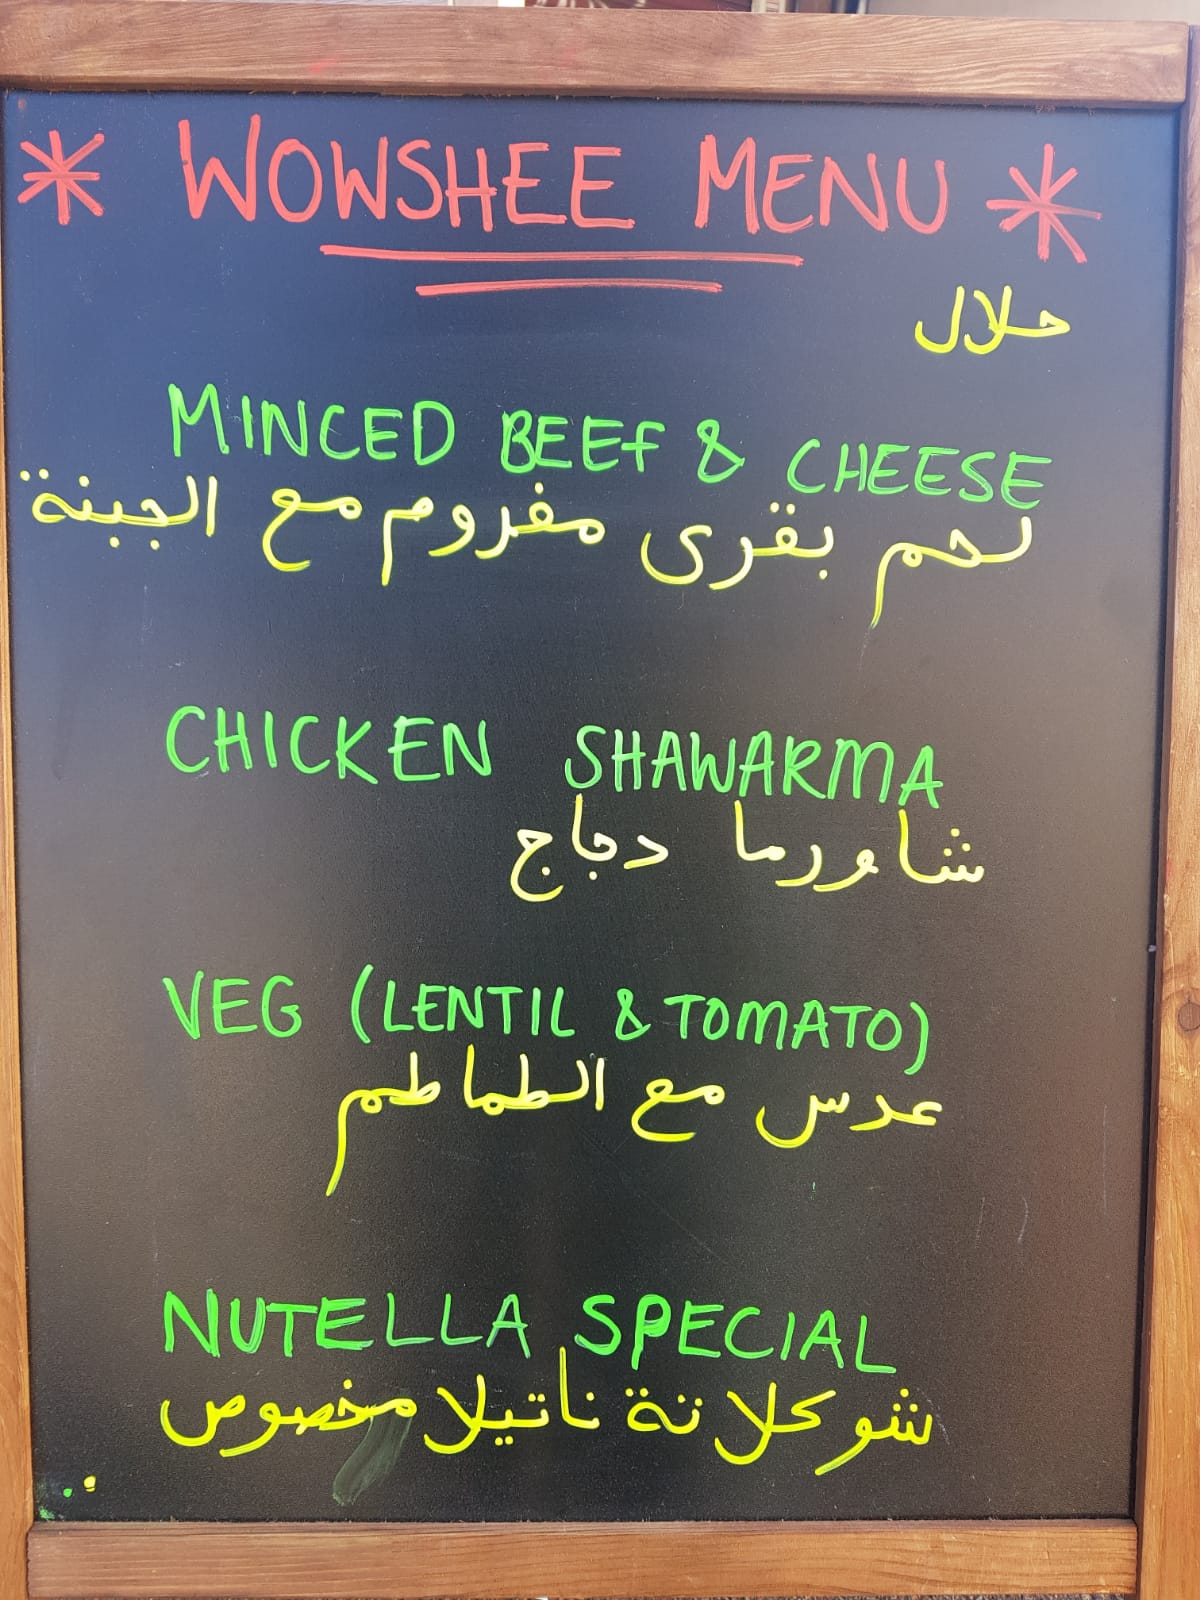 * WOWSHEE MENU *
حلال
MINCED BEEF & CHEESE
لحم بقرى مفروم مع الجبنة
CHICKEN SHAWARMA
شاورما دجاج
VEG (LENTIL & TOMATO)
عدس مع الطماطم
NUTELLA SPECIAL
شوكلاتة ناتيلا مخصوص